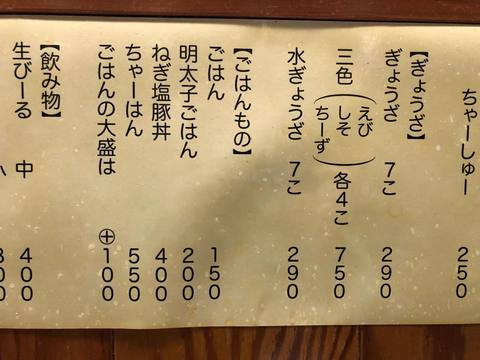 ちゃーしゅー 250
【ぎょうざ】
ぎょうざ 7こ 290
三色(えび しそ ちーず)各4こ 750
水ぎょうざ 7こ 290
【ごはんもの】
ごはん 150
明太子ごはん 200
ねぎ塩豚丼 400
ちゃーはん 550
ごはんの大盛は ⊕100
【飲み物】
生びーる 中 400